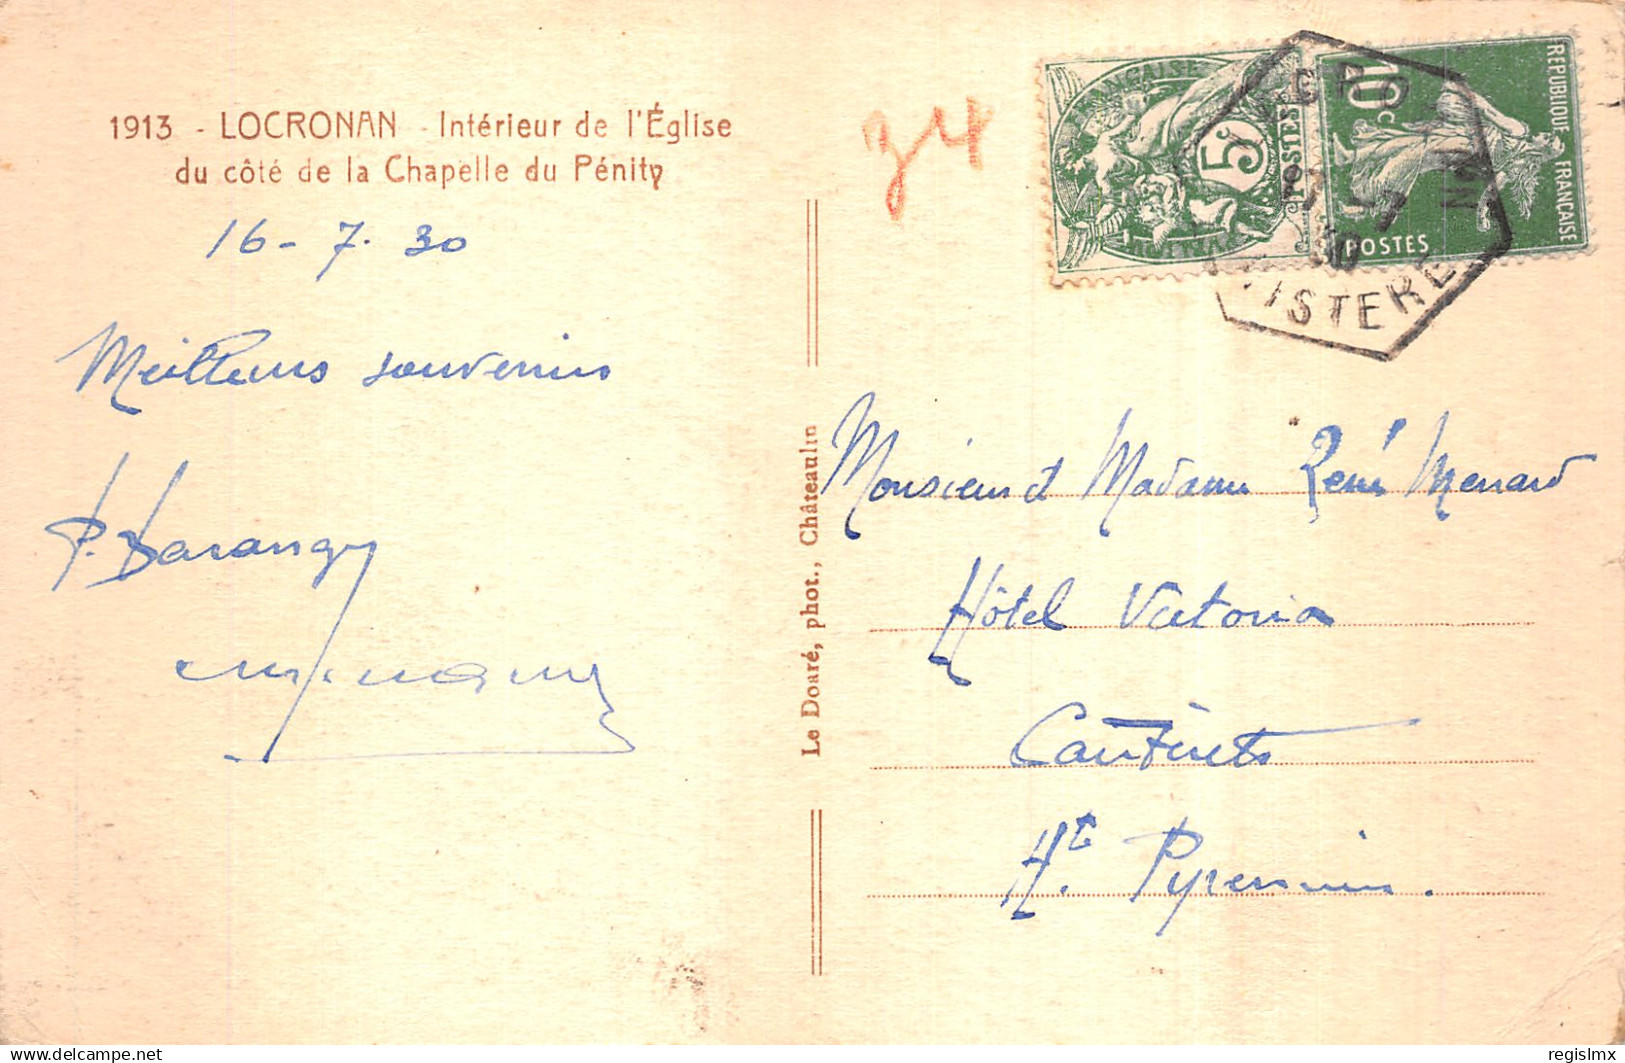 1913 - LOCRONAN - Intérieur de l'Église
du côté de la Chapelle du Pénity
16-7.30
Meilleurs souvenirs
P. Darangy
Le Doaré, phot., Châteaulin
34
FRANÇAISE
5c
POSTES
10c
REPUBLIQUE FRANÇAISE
POSTES
30
Monsieur et Madame René Menard
Hôtel Victoria
Cauterets
Htes Pyrennées.
delcampe.net
regislmx